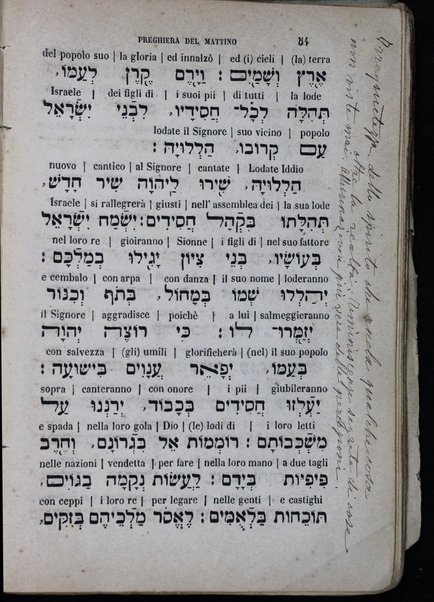 PREGHIERA DEL MATTINO 34
del popolo suo | la gloria | ed innalzò | ed (i) cieli | (la) terra
אֶרֶץ וְשָׁמָיִם׃ וַיָּרֶם קֶרֶן לְעַמּוֹ,
Israele | dei figli di | i suoi pii | di tutti | la lode
תְּהִלָּה לְכָל־ חֲסִידָיו, לִבְנֵי יִשְׂרָאֵל
lodate il Signore | suo vicino | popolo
עַם קְרוֹבוֹ, הַלְלוּיָהּ׃
nuovo | cantico | al Signore | cantate | Lodate Iddio
הַלְלוּיָהּ, שִׁירוּ לַיהוָה שִׁיר חָדָשׁ,
Israele | si rallegrerà | giusti | nell' assemblea dei | la sua lode
תְּהִלָּתוֹ בִּקְהַל חֲסִידִים׃ יִשְׂמַח יִשְׂרָאֵל
nel loro re | gioiranno | Sionne | i figli di | nel suo fattore
בְּעוֹשָׂיו, בְּנֵי צִיּוֹן יָגִילוּ בְמַלְכָּם׃
e cembalo | con arpa | con danza | il suo nome | loderanno
יְהַלְלוּ שְׁמוֹ בְמָחוֹל, בְּתֹף וְכִנּוֹר
il Signore | aggradisce | poichè | a lui | salmeggieranno
יְזַמְּרוּ־ לוֹ׃ כִּי רוֹצֶה יְהוָה
con salvezza | (gli) umili | glorificherà | (nel) il suo popolo
בְּעַמּוֹ, יְפָאֵר עֲנָוִים בִּישׁוּעָה׃
sopra | canteranno | con onore | i pii | giubileranno
יַעְלְזוּ חֲסִידִים בְּכָבוֹד, יְרַנְּנוּ עַל־
e spada | nella loro gola | Dio | (le) lodi di | i loro letti
מִשְׁכְּבוֹתָם׃ רוֹמְמוֹת אֵל בִּגְרוֹנָם, וְחֶרֶב
nelle nazioni | vendetta | per fare | nella loro mano | a due tagli
פִּיפִיּוֹת בְּיָדָם׃ לַעֲשׂוֹת נְקָמָה בַגּוֹיִם,
con ceppi | i loro re | per legare | nelle genti | e castighi
תּוֹכֵחוֹת בַּלְאֻמִּים׃ לֶאְסֹר מַלְכֵיהֶם בְּזִקִּים,
dello spirito che qualche
non vi è mai